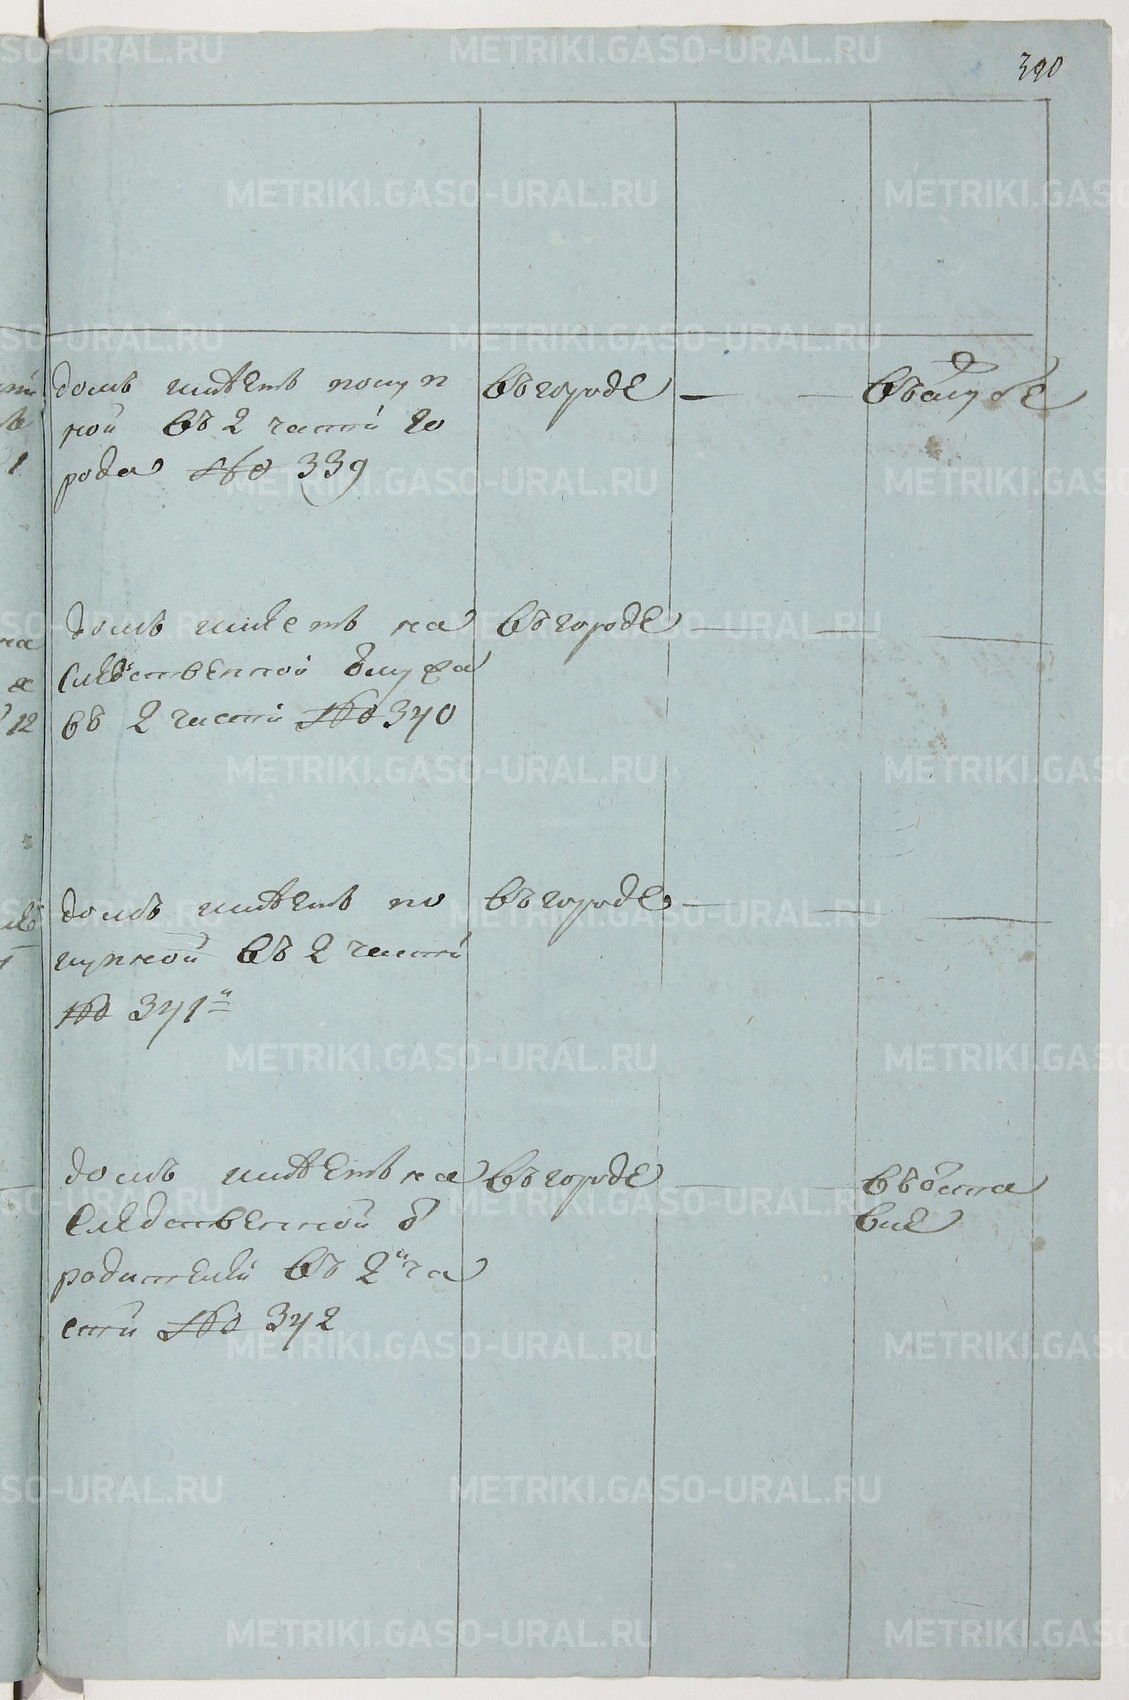 390
домъ имѣетъ покуп
ной въ 2 части го
рода № 339
въ городе — —
въ службе
домъ имѣетъ на
следственной
въ 2 части № 340
въ городе — — —
домъ имѣетъ по
купной въ 2 части
№ 341й
въ городе — — —
домъ имѣетъ на
следственной
родителей въ 2й ча
сти № 342
въ городе —
въ отста
вке
METRIKI.GASO-URAL.RU